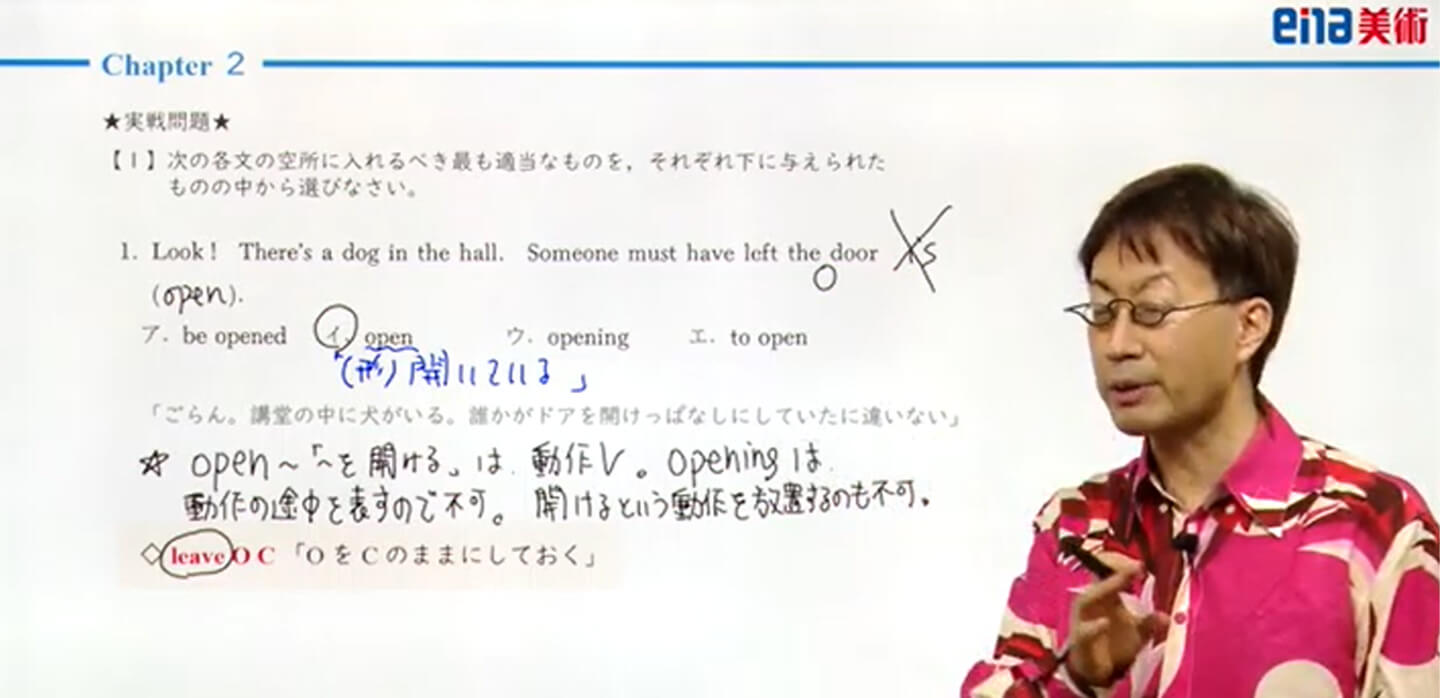 ena美術
Chapter 2
★実戦問題★
【1】次の各文の空所に入れるべき最も適当なものを，それぞれ下に与えられた
ものの中から選びなさい。
1. Look! There's a dog in the hall. Someone must have left the door
(open).
ア．be opened イ．open ウ．opening エ．to open
「(形)開いている」
「ごらん。講堂の中に犬がいる。誰かがドアを開けっぱなしにしていたに違いない」
☆ open～「～を開ける」は、動作V。openingは
動作の途中を表すので不可。開けるという動作を放置するのも不可。
◇leave O C 「OをCのままにしておく」